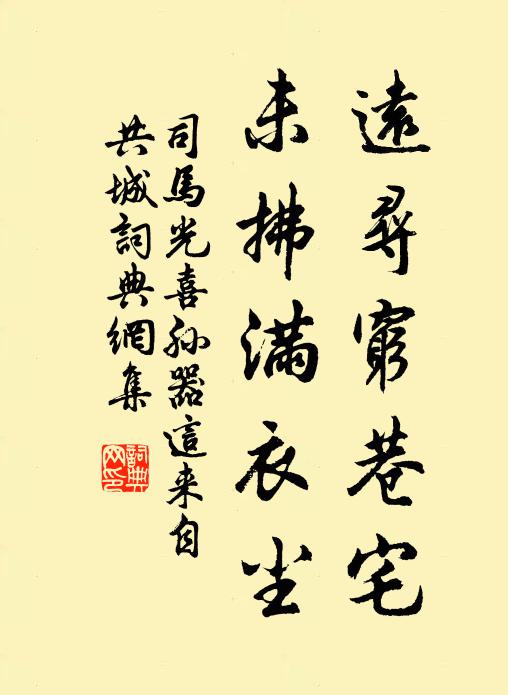 遠尋窮巷宅
未拂滿衣尘
司馬光喜孫器這来自
共城詞典網集
詞典
网印